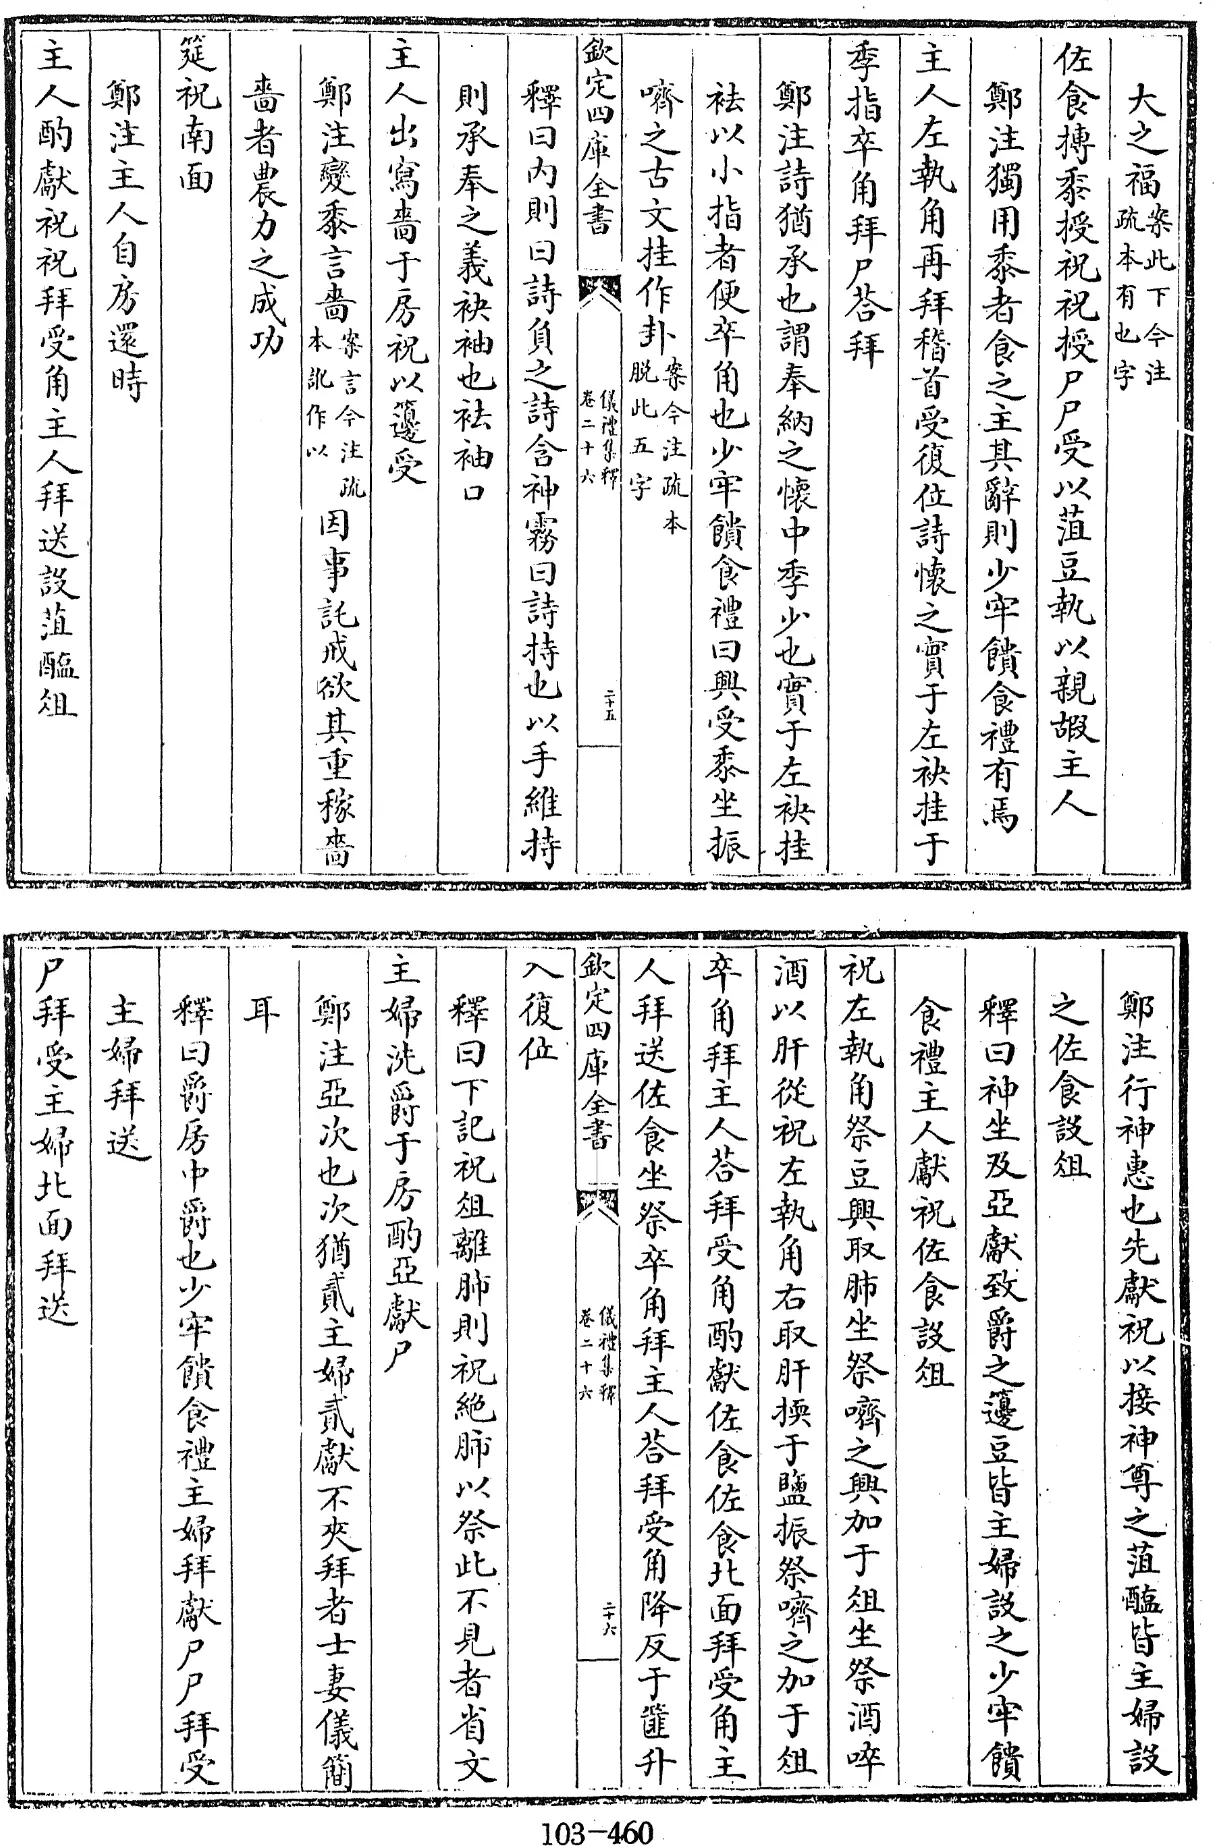 大之福案此下今注
疏本有也字
佐食摶黍授祝祝授尸尸受以菹豆執以親嘏主人
鄭注獨用黍者食之主其辭則少牢饋食禮有焉
主人左執角再拜稽首受復位詩懷之實于左袂挂于
季指卒角拜尸荅拜
鄭注詩猶承也謂奉納之懷中季少也實于左袂挂
袪以小指者便卒角也少牢饋食禮曰興受黍坐振
嚌之古文挂作卦案今注疏本
脱此五字
欽定四庫全書
儀禮集釋
卷二十六
二十五
釋曰内則曰詩負之詩含神霧曰詩持也以手維持
則承奉之義袂袖也袪袖口
主人出寫嗇于房祝以籩受
鄭注變黍言嗇案言今注疏
本訛作以因事託戒欲其重稼嗇
嗇者農力之成功
筵祝南面
鄭注主人自房還時
主人酌獻祝祝拜受角主人拜送設菹醢俎
鄭注行神惠也先獻祝以接神尊之菹醢皆主婦設
之佐食設俎
釋曰神坐及亞獻致爵之籩豆皆主婦設之少牢饋
食禮主人獻祝佐食設俎
祝左執角祭豆興取肺坐祭嚌之興加于俎坐祭酒啐
酒以肝從祝左執角右取肝擩于鹽振祭嚌之加于俎
卒角拜主人荅拜受角酌獻佐食佐食北面拜受角主
人拜送佐食坐祭卒角拜主人荅拜受角降反于篚升
欽定四庫全書
儀禮集釋
卷二十六
二十六
入復位
釋曰下記祝俎離肺則祝絶肺以祭此不見者省文
主婦洗爵于房酌亞獻尸
鄭注亞次也次猶貳主婦貳獻不夾拜者士妻儀簡
耳
釋曰爵房中爵也少牢饋食禮主婦拜獻尸尸拜受
主婦拜送
尸拜受主婦北面拜送
103-460